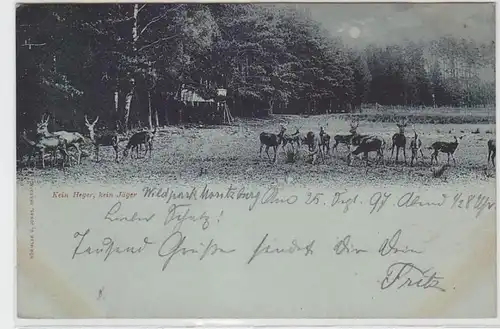 Kein Heger, kein Jäger Wildpark Moritzburg, den 25. Sept. 97 Abend 1/2 8 Uhr
Lieber Schatz!
Tausend Grüße sendet Dir Dein
Fritz